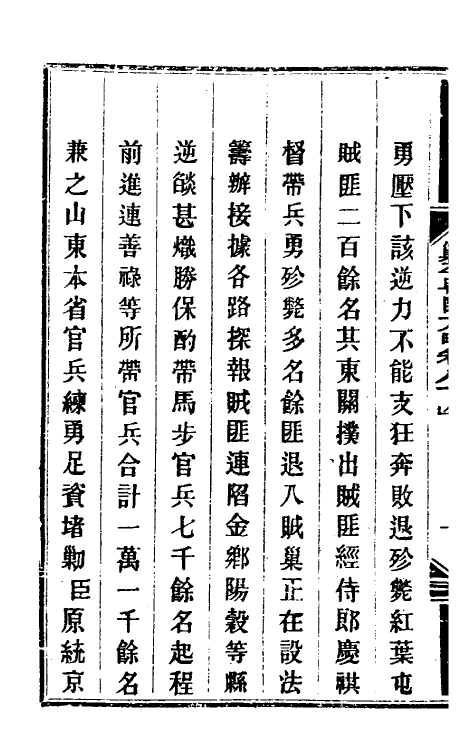 勇壓下該逆力不能支狂奔敗退殄斃紅葉屯
賊匪二百餘名其東關撲出賊匪經侍郎慶祺
督帶兵勇殄斃多名餘匪退入賊巢正在設法
籌辦接據各路探報賊匪連陷金鄉陽穀等縣
逆燄甚熾勝保酌帶馬步官兵七千餘名起程
前進連善祿等所帶官兵合計一萬一千餘名
兼之山東本省官兵練勇足資堵勦臣原統京